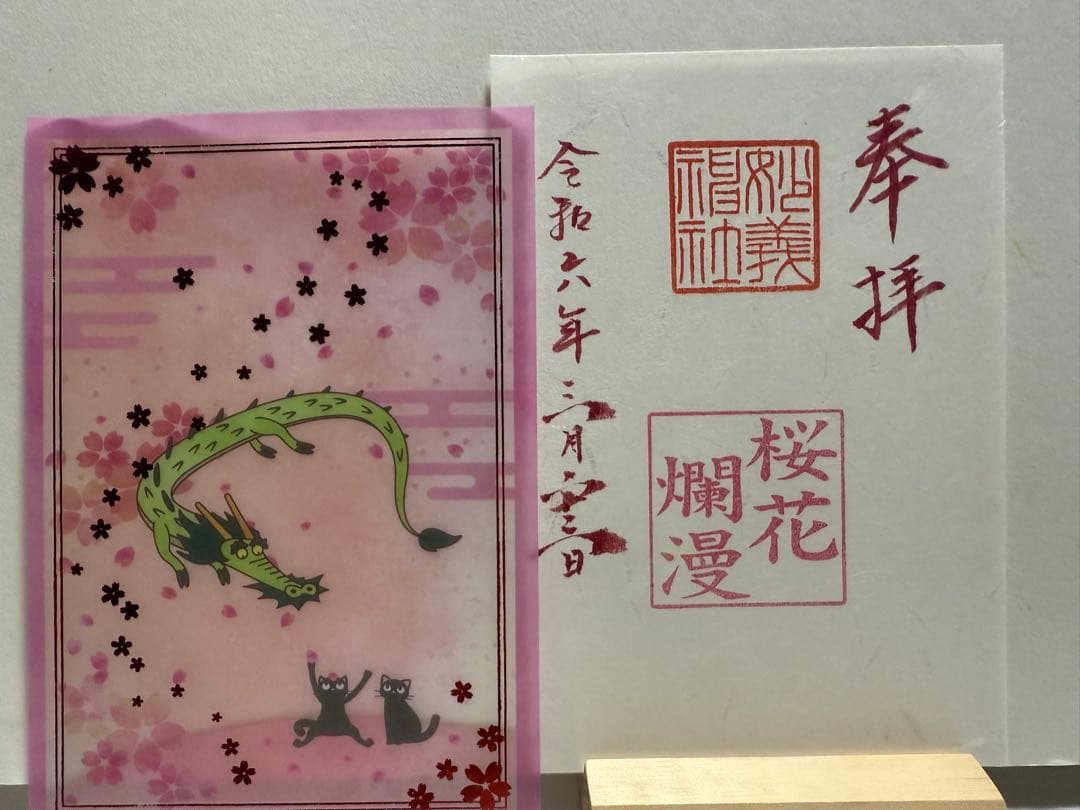 奉拝
妙義
神社
桜花
爛漫
令和六年三月二十三日